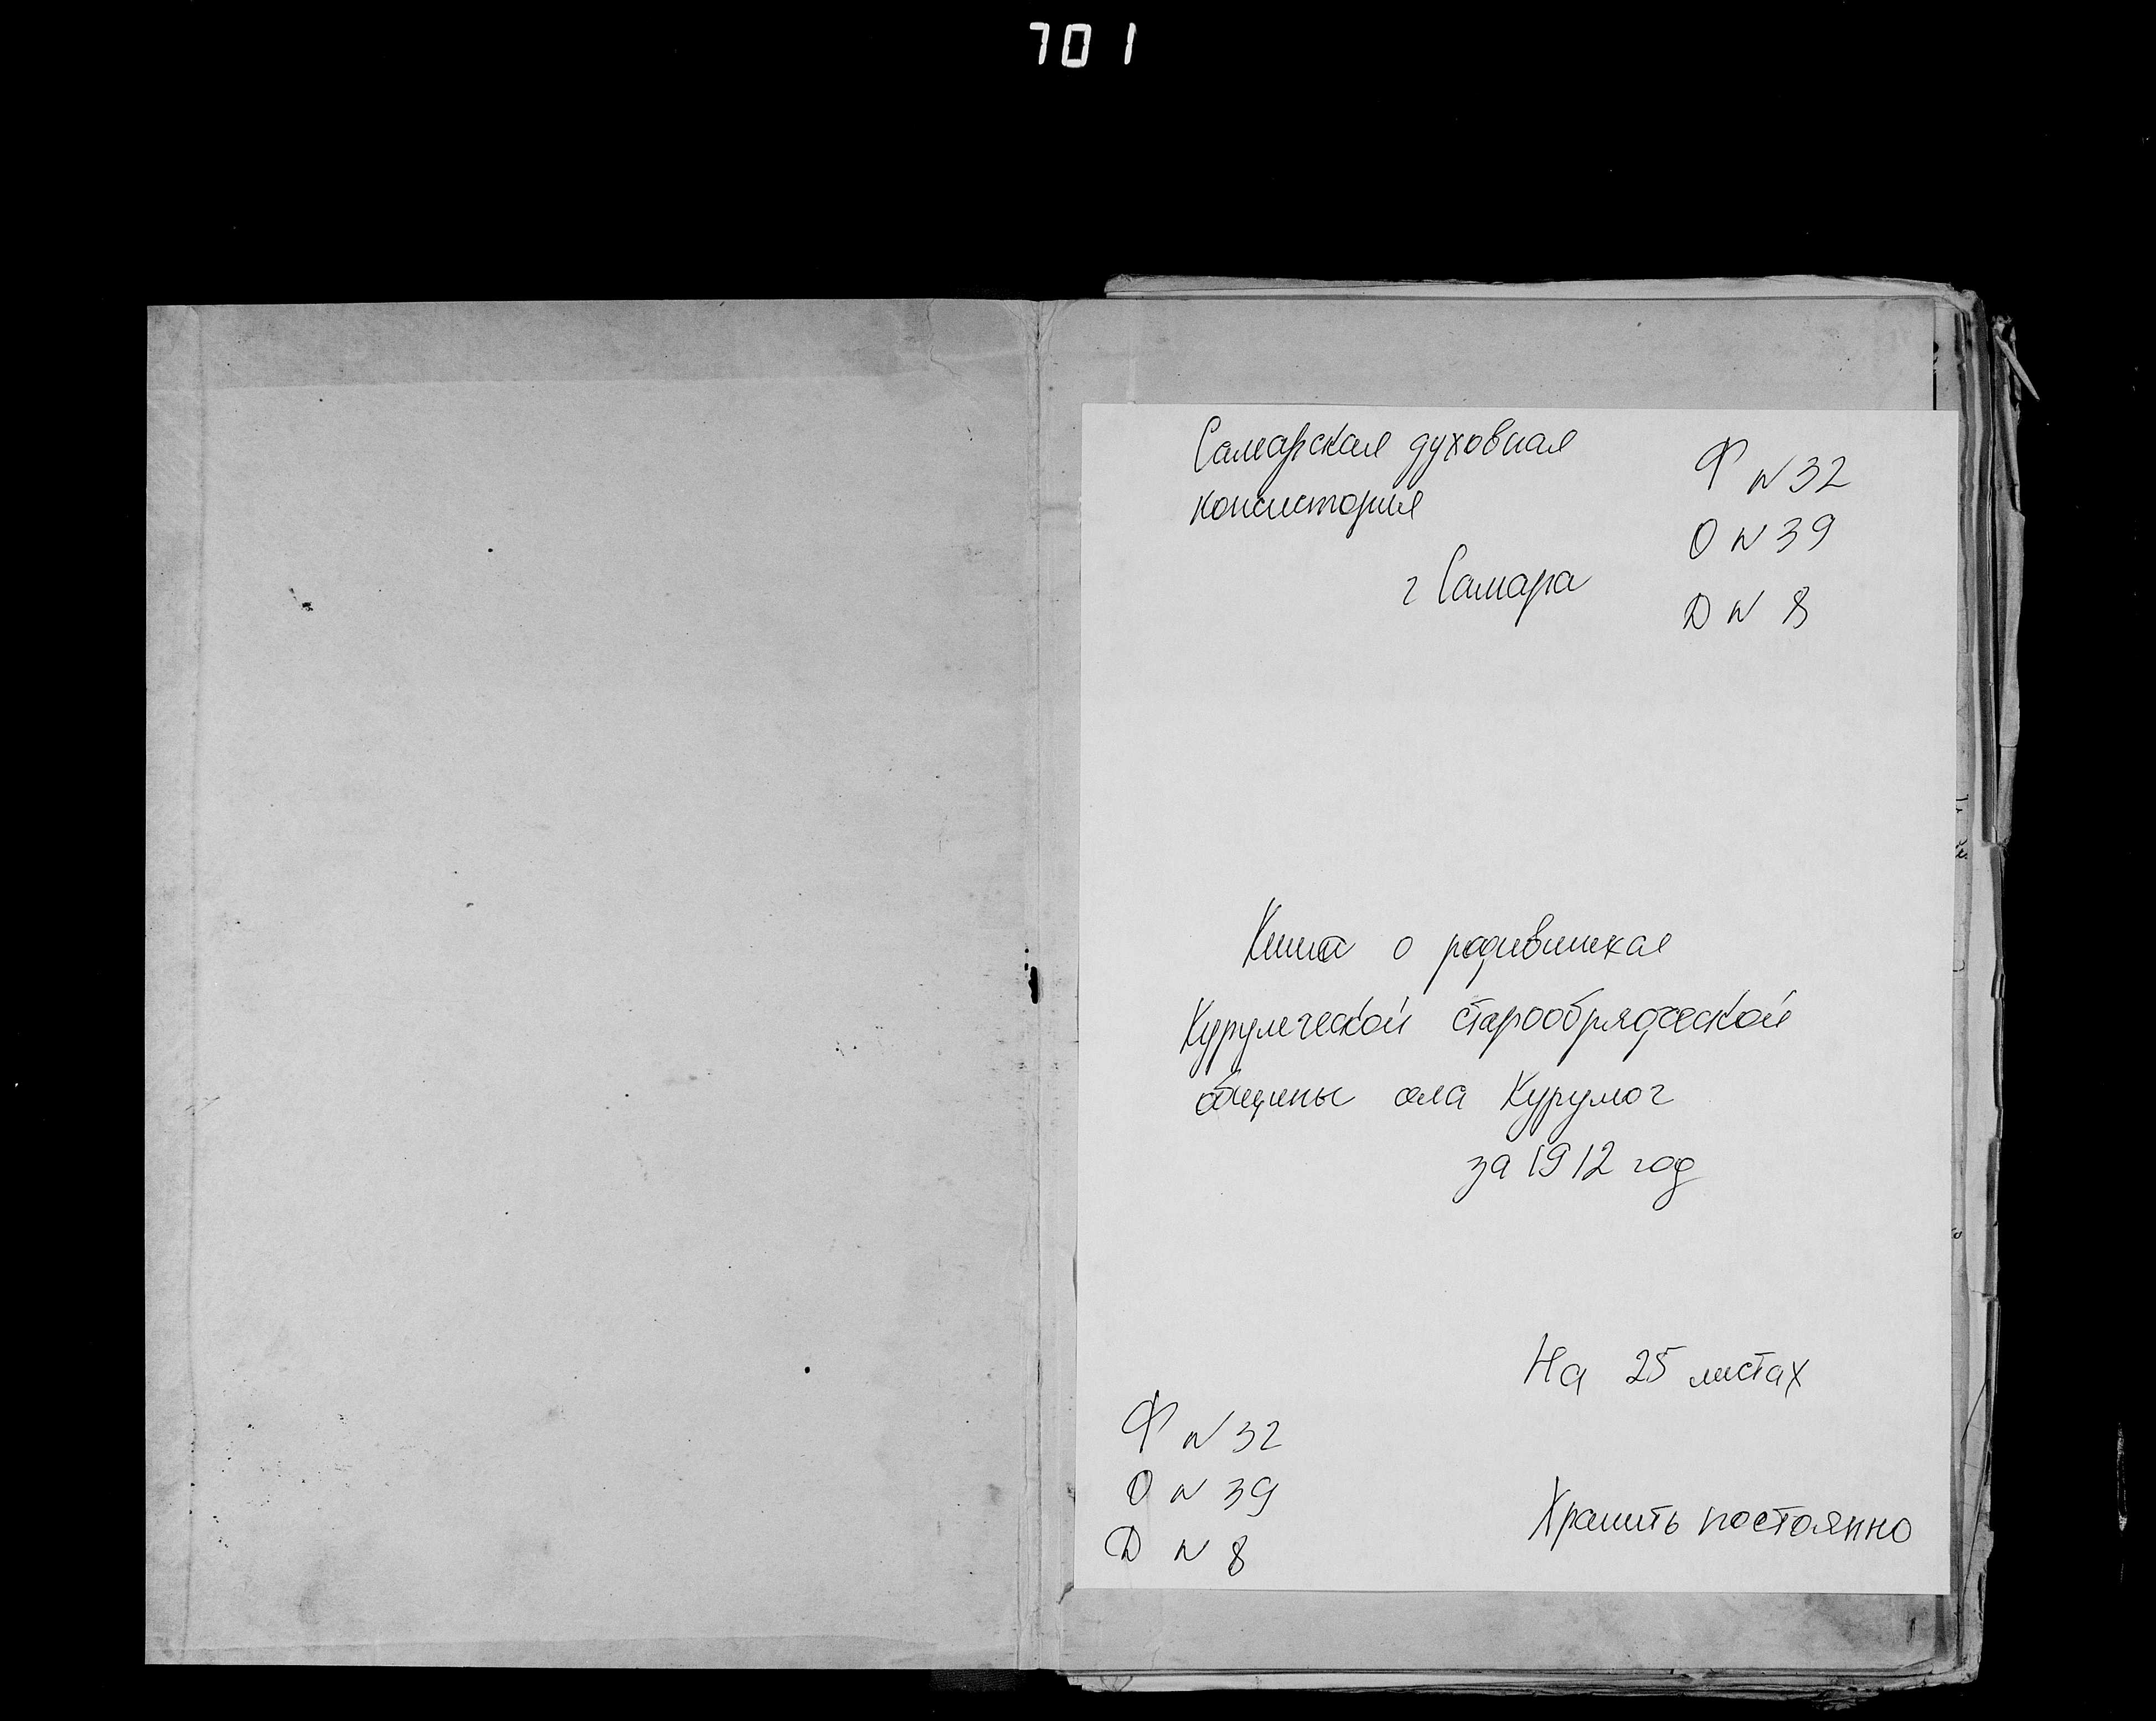 701
Самарская духовная
консистория
г Самара
Ф N 32
О N 39
Д N 8
Книга о родившихся
Курумческой старообрядческой
общины села Курумоч
за 1912 год
На 25 листах
Ф N 32
О N 39
Д N 8
Хранить постоянно